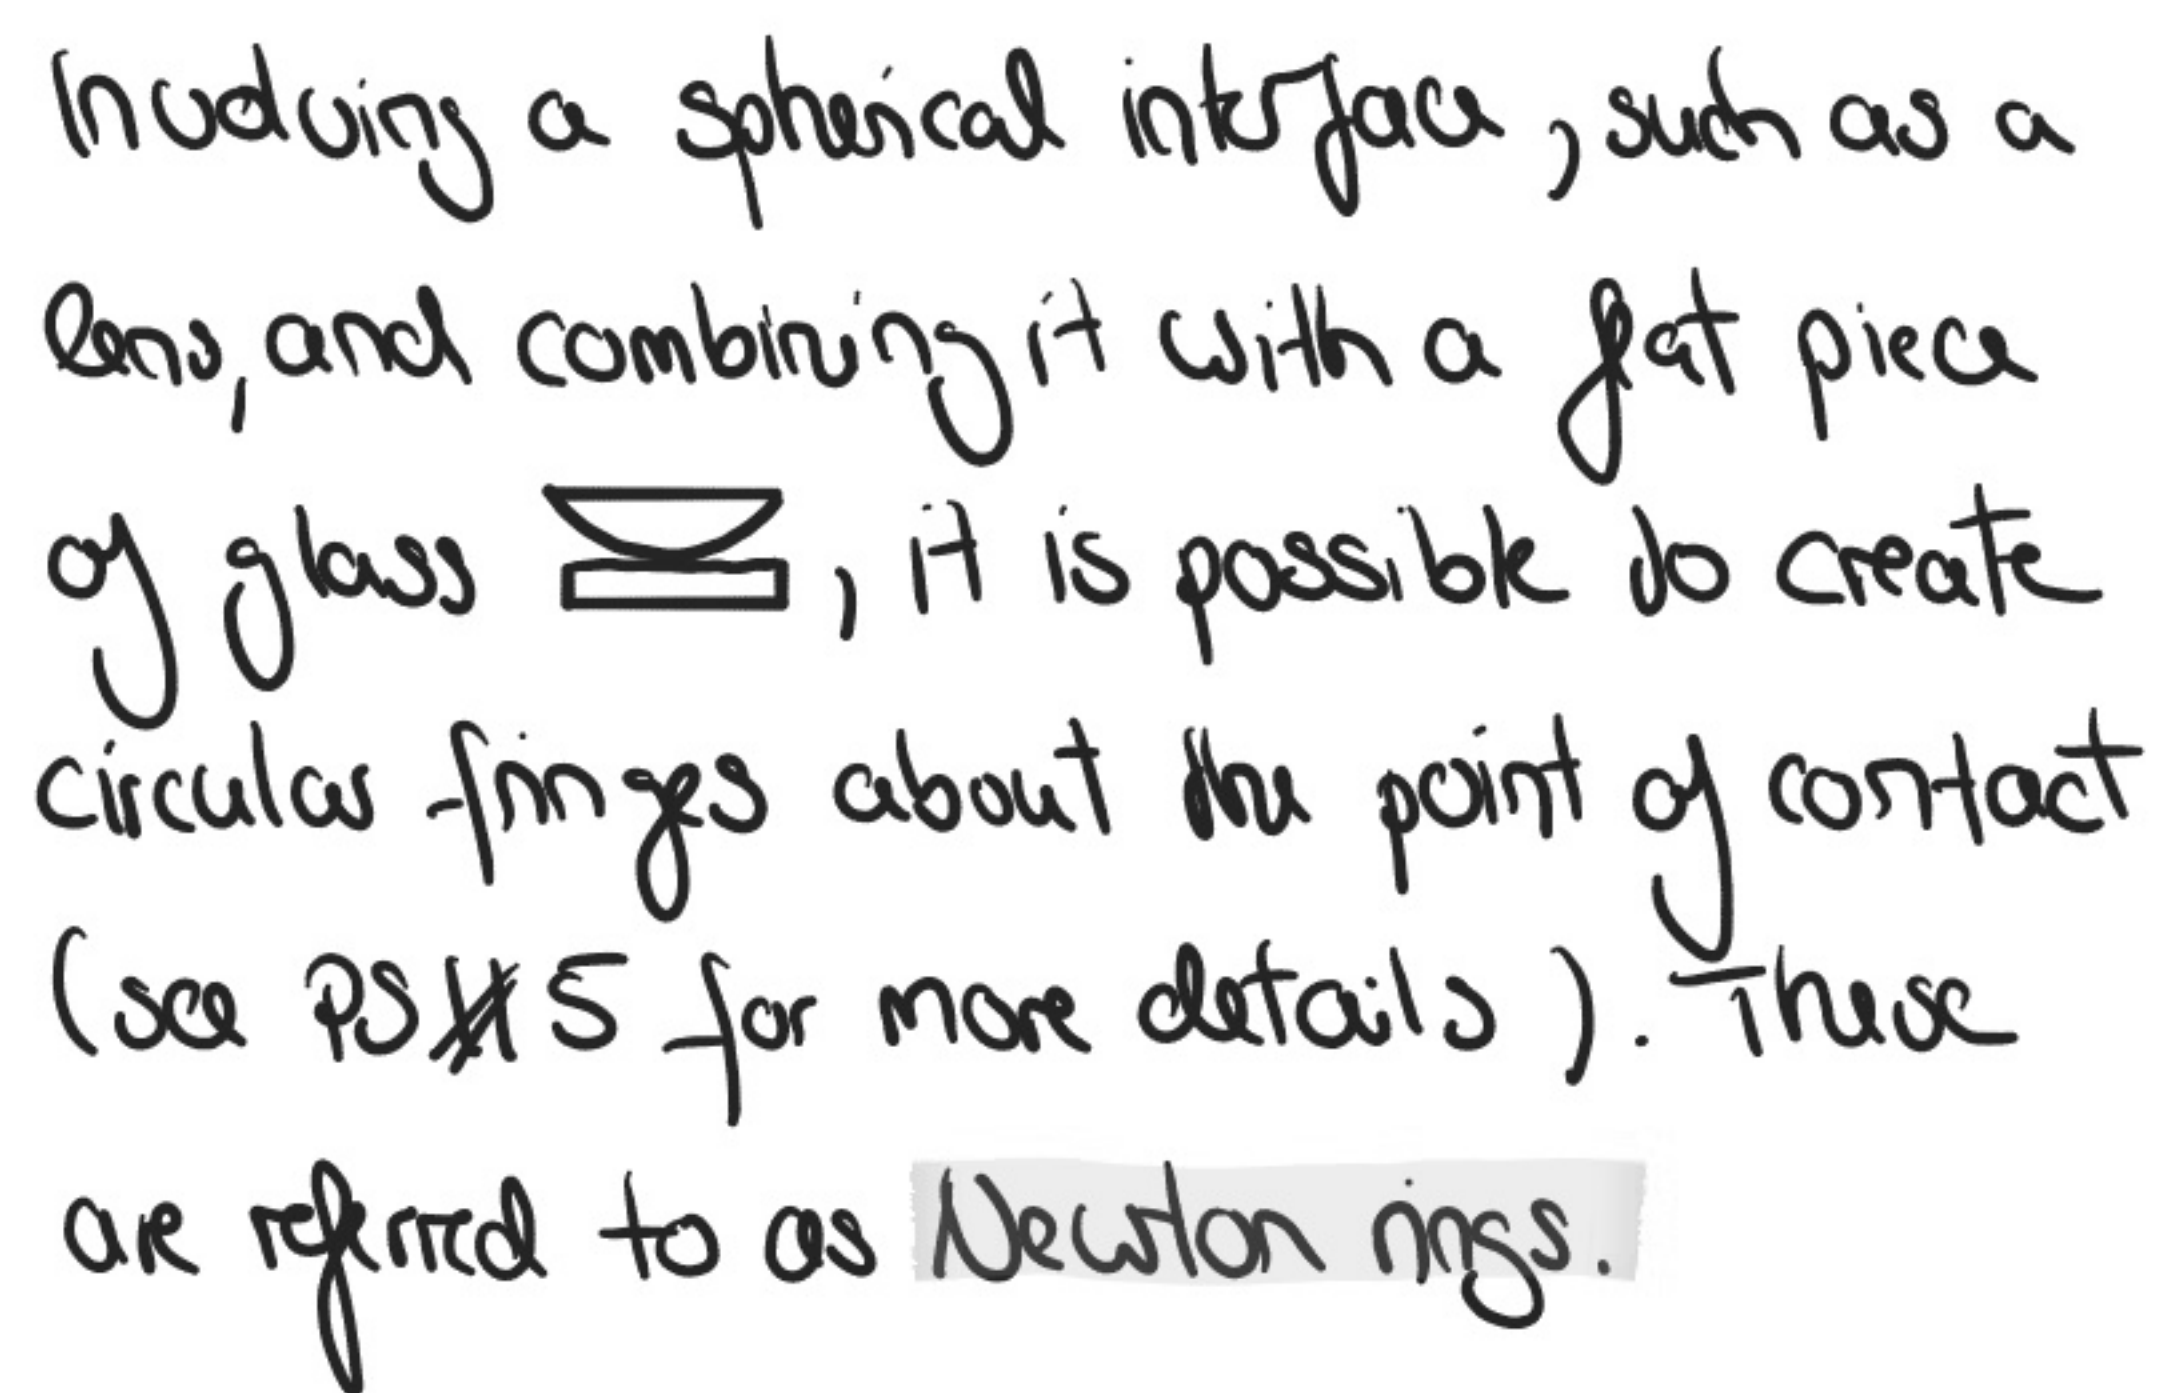 Involving a spherical interface, such as a
lens, and combining it with a flat piece
of glass , it is possible to create
circular fringes about the point of contact
(see PS#5 for more details). These
are referred to as Newton rings.